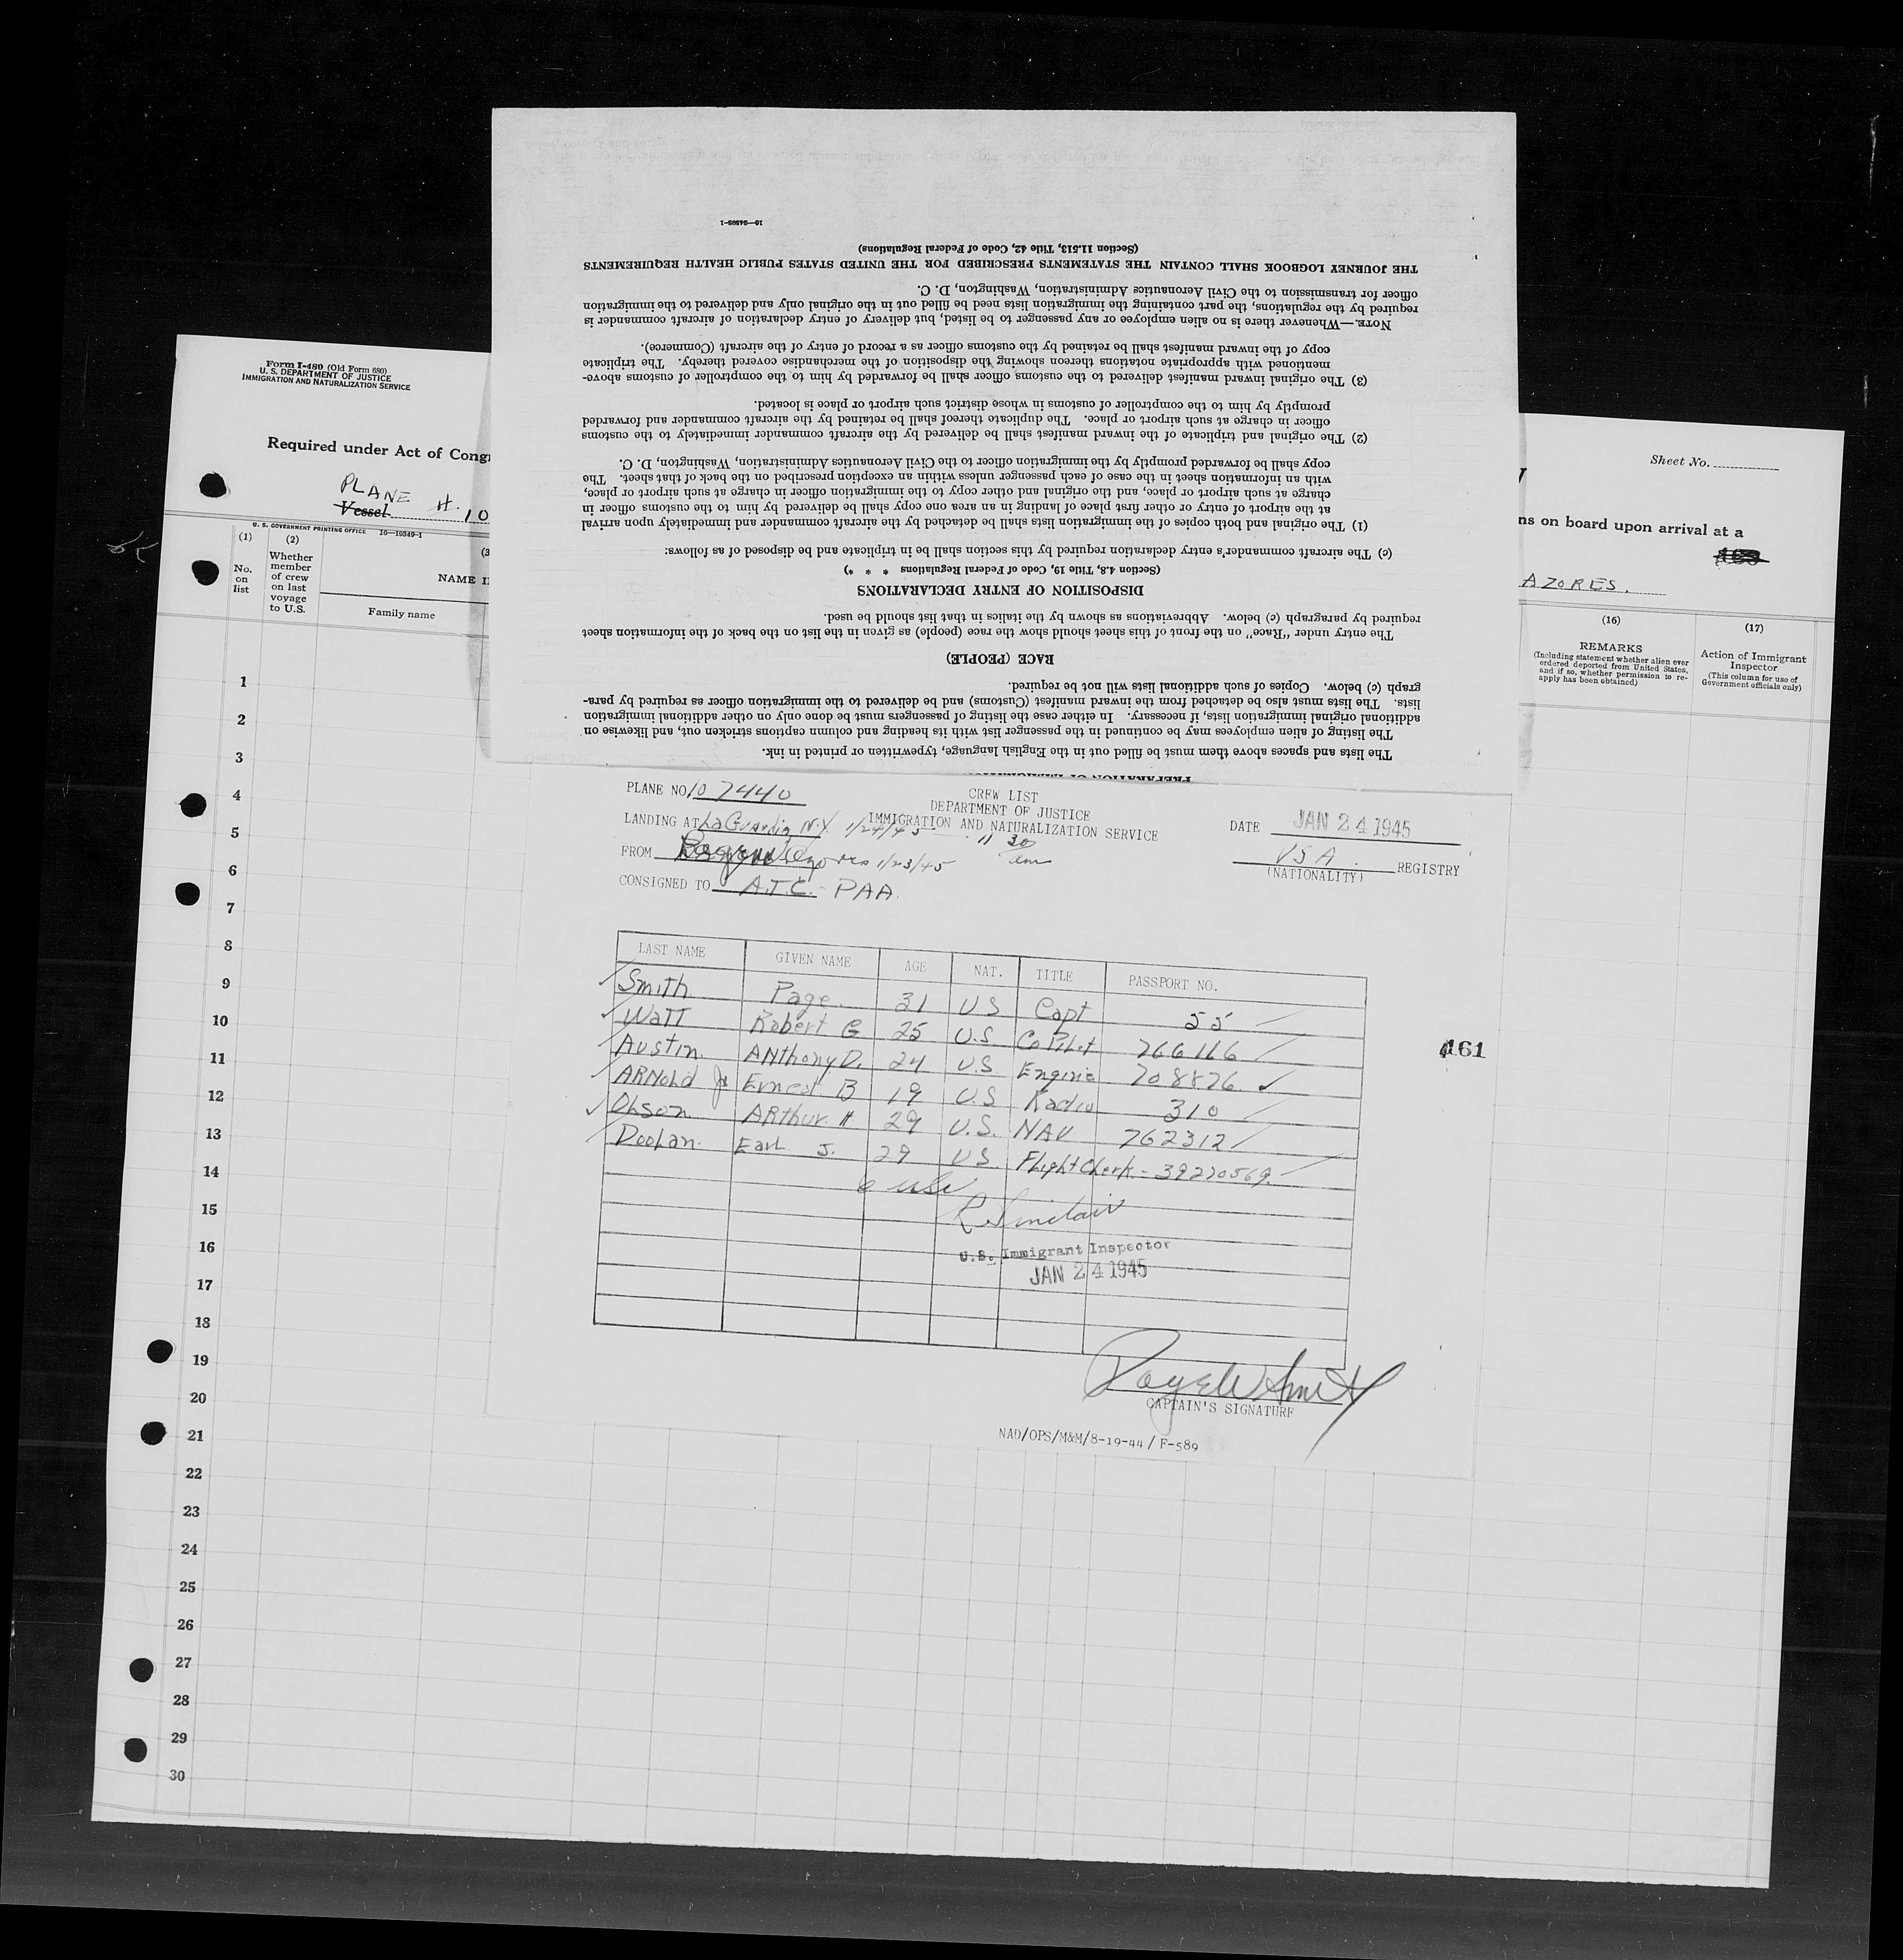 Form I-480 (Old Form 680)
U. S. DEPARTMENT OF JUSTICE
IMMIGRATION AND NATURALIZATION SERVICE
Required under Act of Cong
PLANE # 10
Vessel
U. S. GOVERNMENT PRINTING OFFICE 16—10349-1
(1) (2) (3
No. on list
Whether member of crew on last voyage to U.S.
NAME I
Family name
1
2
3
4
5
6
7
8
9
10
11
12
13
14
15
16
17
18
19
20
21
22
23
24
25
26
27
28
29
30
Sheet No.
ns on board upon arrival at a
AZORES.
(16) (17)
REMARKS
(Including statement whether alien ever ordered deported from United States, and if so, whether permission to re-apply has been obtained)
Action of Immigrant Inspector
(This column for use of Government officials only)
PREPARATION OF IMMIGRATION
The lists and spaces above them must be filled out in the English language, typewritten or printed in ink.
The listing of alien employees may be continued in the passenger list with its heading and column captions stricken out, and likewise on
additional original immigration lists, if necessary. In either case the listing of passengers must be done only on other additional immigration
lists. The lists must also be detached from the inward manifest (Customs) and be delivered to the immigration officer as required by para-
graph (c) below. Copies of such additional lists will not be required.
RACE (PEOPLE)
The entry under "Race" on the front of this sheet should show the race (people) as given in the list on the back of the information sheet
required by paragraph (c) below. Abbreviations as shown by the italics in that list should be used.
DISPOSITION OF ENTRY DECLARATIONS
(Section 4.8, Title 19, Code of Federal Regulations * * *)
(c) The aircraft commander's entry declaration required by this section shall be in triplicate and be disposed of as follows:
(1) The original and both copies of the immigration lists shall be detached by the aircraft commander and immediately upon arrival
at the airport of entry or other first place of landing in an area one copy shall be delivered by him to the customs officer in
charge at such airport or place, and the original and other copy to the immigration officer in charge at such airport or place,
with an information sheet in the case of each passenger unless within an exception prescribed on the back of that sheet. The
copy shall be forwarded promptly by the immigration officer to the Civil Aeronautics Administration, Washington, D. C.
(2) The original and triplicate of the inward manifest shall be delivered by the aircraft commander immediately to the customs
officer in charge at such airport or place. The duplicate thereof shall be retained by the aircraft commander and forwarded
promptly by him to the comptroller of customs in whose district such airport or place is located.
(3) The original inward manifest delivered to the customs officer shall be forwarded by him to the comptroller of customs above-
mentioned with appropriate notations thereon showing the disposition of the merchandise covered thereby. The triplicate
copy of the inward manifest shall be retained by the customs officer as a record of entry of the aircraft (Commerce).
NOTE.—Whenever there is no alien employee or any passenger to be listed, but delivery of entry declaration of aircraft commander is
required by the regulations, the part containing the immigration lists need be filled out in the original only and delivered to the immigration
officer for transmission to the Civil Aeronautics Administration, Washington, D. C.
THE JOURNEY LOGBOOK SHALL CONTAIN THE STATEMENTS PRESCRIBED FOR THE UNITED STATES PUBLIC HEALTH REQUIREMENTS
(Section 11.513, Title 42, Code of Federal Regulations)
PLANE NO 10 7440
CREW LIST
DEPARTMENT OF JUSTICE
IMMIGRATION AND NATURALIZATION SERVICE
LANDING AT La Guardia, N.Y. 1/24/45 11 30 am
DATE JAN 24 1945
FROM 1/23/45
USA. REGISTRY
(NATIONALITY)
CONSIGNED TO A.T.C. - PAA.
LAST NAME GIVEN NAME AGE NAT. TITLE PASSPORT NO.
Smith Page. 31 US Capt 55
Watt Robert G 25 U.S. CoPilot 766166
Austin. ANthony D. 24 U.S. Engine 708876
ARNold Jr Ernest B 19 U.S Radio 310
OLson ARthur H 29 U.S. NAV 762312
DooLan. Earl J. 29 US FlightClerk - 39270569
6 USC
R Sinclair
U.S. Immigrant Inspector
JAN 24 1945
161
Page W Smith
CAPTAIN'S SIGNATURE
NAD/OPS/M&M/8-19-44 / F-589